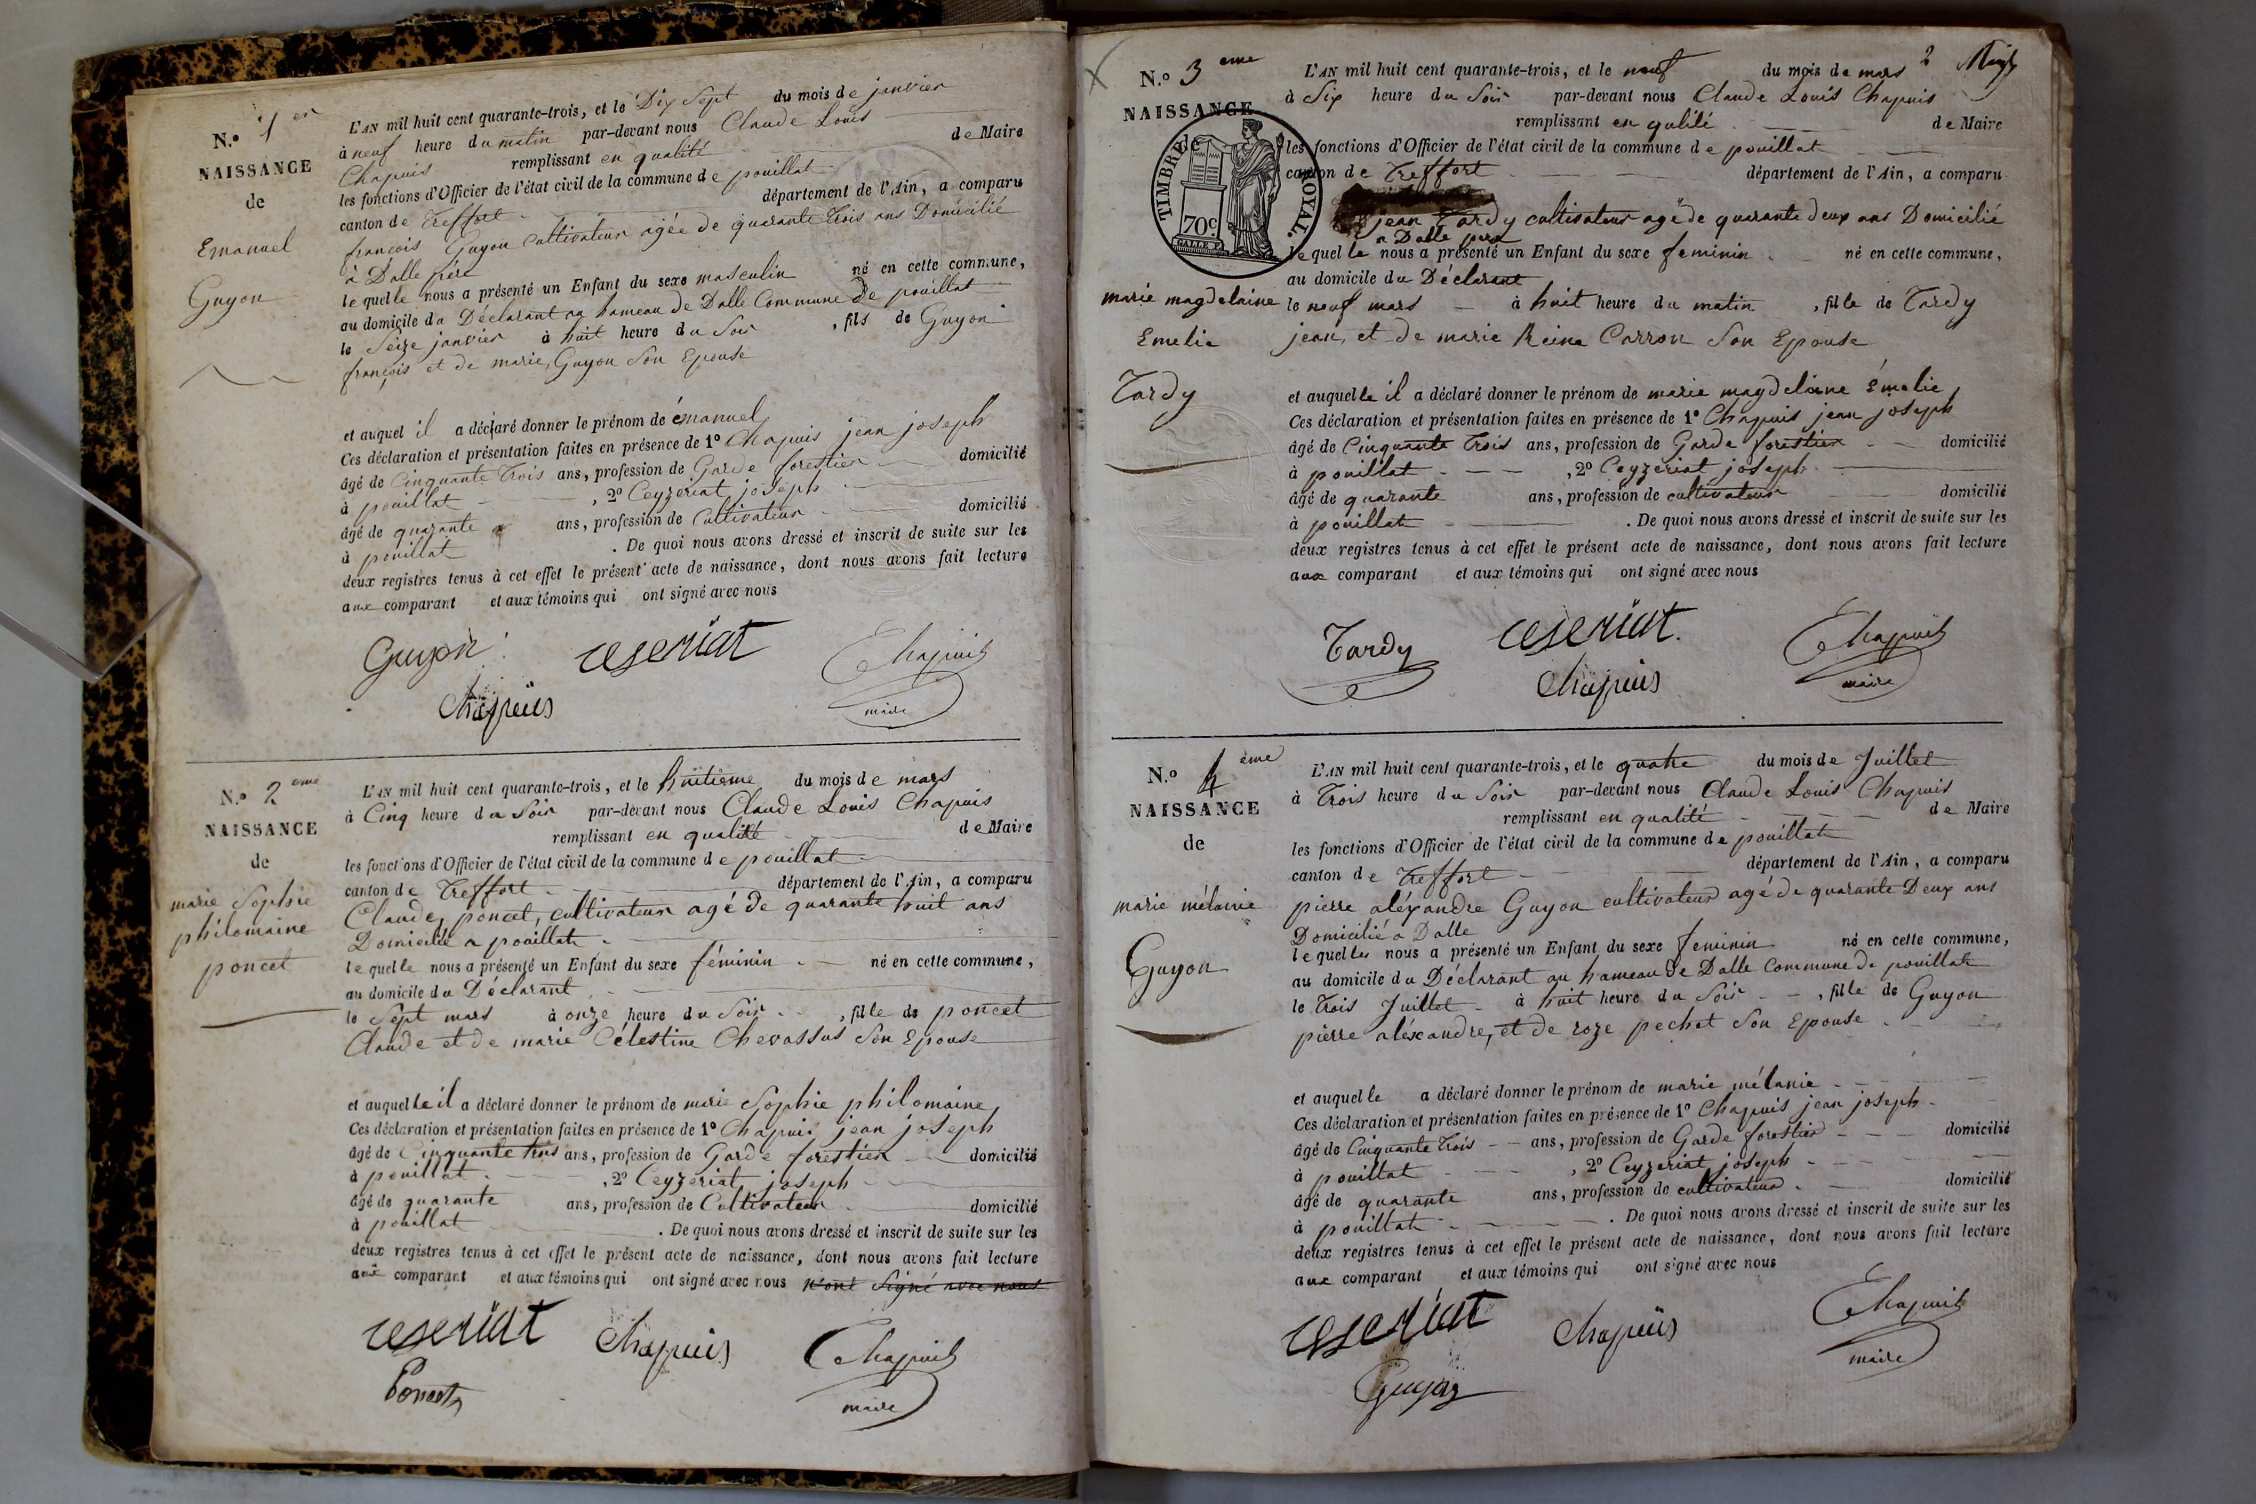 N.º 1er
NAISSANCE
de
Emanuel
Guyon
L'AN mil huit cent quarante-trois, et le Dix Sept du mois de janvier
à neuf heure du matin par-devant nous Claude Louis
Chapuis remplissant en qualité de Maire
les fonctions d'Officier de l'état civil de la commune de pouillat
canton de Treffort département de l'Ain, a comparu
françois Guyon cultivateur agée de quarante Trois ans Domicilié
à Dalle père
lequelle nous a présenté un Enfant du sexe masculin né en cette commune,
au domicile du Déclarant au hameau de Dalle Commune De pouillat
le Seize janvier à huit heure du Soir , fils de Guyon
françois et de marie Guyon Son Epouse
et auquel il a déclaré donner le prénom de émanuel
Ces déclaration et présentation faites en présence de 1º Chapuis jean joseph
âgé de Cinquante Trois ans, profession de Garde forestier domicilié
à pouillat , 2º Ceyzeriat joseph
âgé de quarante ans, profession de Cultivateur domicilié
à pouillat . De quoi nous avons dressé et inscrit de suite sur les
deux registres tenus à cet effet le présent acte de naissance, dont nous avons fait lecture
aux comparant et aux témoins qui ont signé avec nous
Guyon ceseriat Chapuis
Chapuis maire
N.º 2eme
NAISSANCE
de
marie Sophie
philomaine
poncet
L'AN mil huit cent quarante-trois, et le huitième du mois de mars
à Cinq heure du Soir par-devant nous Claude Louis Chapuis
remplissant en qualité de Maire
les fonctions d'Officier de l'état civil de la commune de pouillat
canton de Treffort département de l'Ain, a comparu
Claude, poncet, cultivateur agé de quarante huit ans
Domicilié a pouillat
lequelle nous a présenté un Enfant du sexe féminin né en cette commune,
au domicile du Déclarant
le Sept mars à onze heure du Soir , fille de poncet
Claude et de marie Célestine Chevassus Son Epouse
et auquelle il a déclaré donner le prénom de marie Sophie philomaine,
Ces déclaration et présentation faites en présence de 1º Chapuis jean joseph
âgé de Cinquante trois ans, profession de Garde forestier domicilié
à pouillat , 2º Ceyzeriat joseph
âgé de quarante ans, profession de Cultivateur domicilié
à pouillat . De quoi nous avons dressé et inscrit de suite sur les
deux registres tenus à cet effet le présent acte de naissance, dont nous avons fait lecture
aux comparant et aux témoins qui ont signé avec nous n'ont Signé avec nous
ceseriat Chapuis Chapuis
Poncet maire
2
N.º 3eme
NAISSANCE
de
marie magdelaine
Emelie
Tardy
TIMBRE ROYAL.
70c
L'AN mil huit cent quarante-trois, et le neuf du mois de mars
à Six heure du Soir par-devant nous Claude Louis Chapuis
remplissant en qulité de Maire
les fonctions d'Officier de l'état civil de la commune de pouillat
canton de Treffort département de l'Ain, a comparu
jean Tardy cultivateur agé de quarante deux ans Domicilié
a Dalle père
lequelle nous a présenté un Enfant du sexe feminin né en cette commune,
au domicile du Déclarant
le neuf mars à huit heure du matin , fille de Tardy
jean, et de marie Reine Carron Son Epouse
et auquelle il a déclaré donner le prénom de marie magdelaine Émelie,
Ces déclaration et présentation faites en présence de 1º Chapuis jean joseph
âgé de Cinquante Trois ans, profession de Garde forestier domicilié
à pouillat , 2º Ceyzeriat joseph
âgé de quarante ans, profession de cultivateur domicilié
à pouillat . De quoi nous avons dressé et inscrit de suite sur les
deux registres tenus à cet effet le présent acte de naissance, dont nous avons fait lecture
aux comparant et aux témoins qui ont signé avec nous
Tardy ceseriat. Chapuis
Chapuis maire
N.º 4ème
NAISSANCE
de
marie mélanie
Guyon
L'AN mil huit cent quarante-trois, et le quatre du mois de Juillet
à Trois heure du Soir par-devant nous Claude Louis Chapuis
remplissant en qualité de Maire
les fonctions d'Officier de l'état civil de la commune de pouillat
canton de Treffort département de l'Ain, a comparu
pierre aléxandre Guyon cultivateur agé de quarante Deux ans
Domicilié a Dalle
lequelle nous a présenté un Enfant du sexe feminin né en cette commune,
au domicile du Déclarant au hameau De Dalle Commune De pouillat
le Trois Juillet à huit heure du Soir , fille de Guyon
pierre aléxandre, et de roze pechet Son Epouse
et auquelle a déclaré donner le prénom de marie mélanie
Ces déclaration et présentation faites en présence de 1º Chapuis jean joseph
âgé de Cinquante Trois ans, profession de Garde forestier domicilié
à pouillat , 2º Ceyzeriat joseph
âgé de quarante ans, profession de cultivateur domicilié
à pouillat . De quoi nous avons dressé et inscrit de suite sur les
deux registres tenus à cet effet le présent acte de naissance, dont nous avons fait lecture
aux comparant et aux témoins qui ont signé avec nous
ceseriat Chapuis Chapuis
Guyon maire